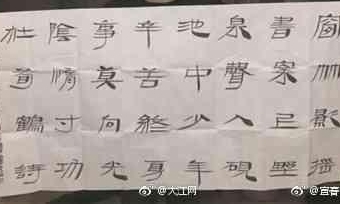 窗竹影搖
書案上野
泉聲入硯
池中少年
辛苦終身
事莫向光
陰惰寸功
杜荀鶴詩
@大江网
@宫春